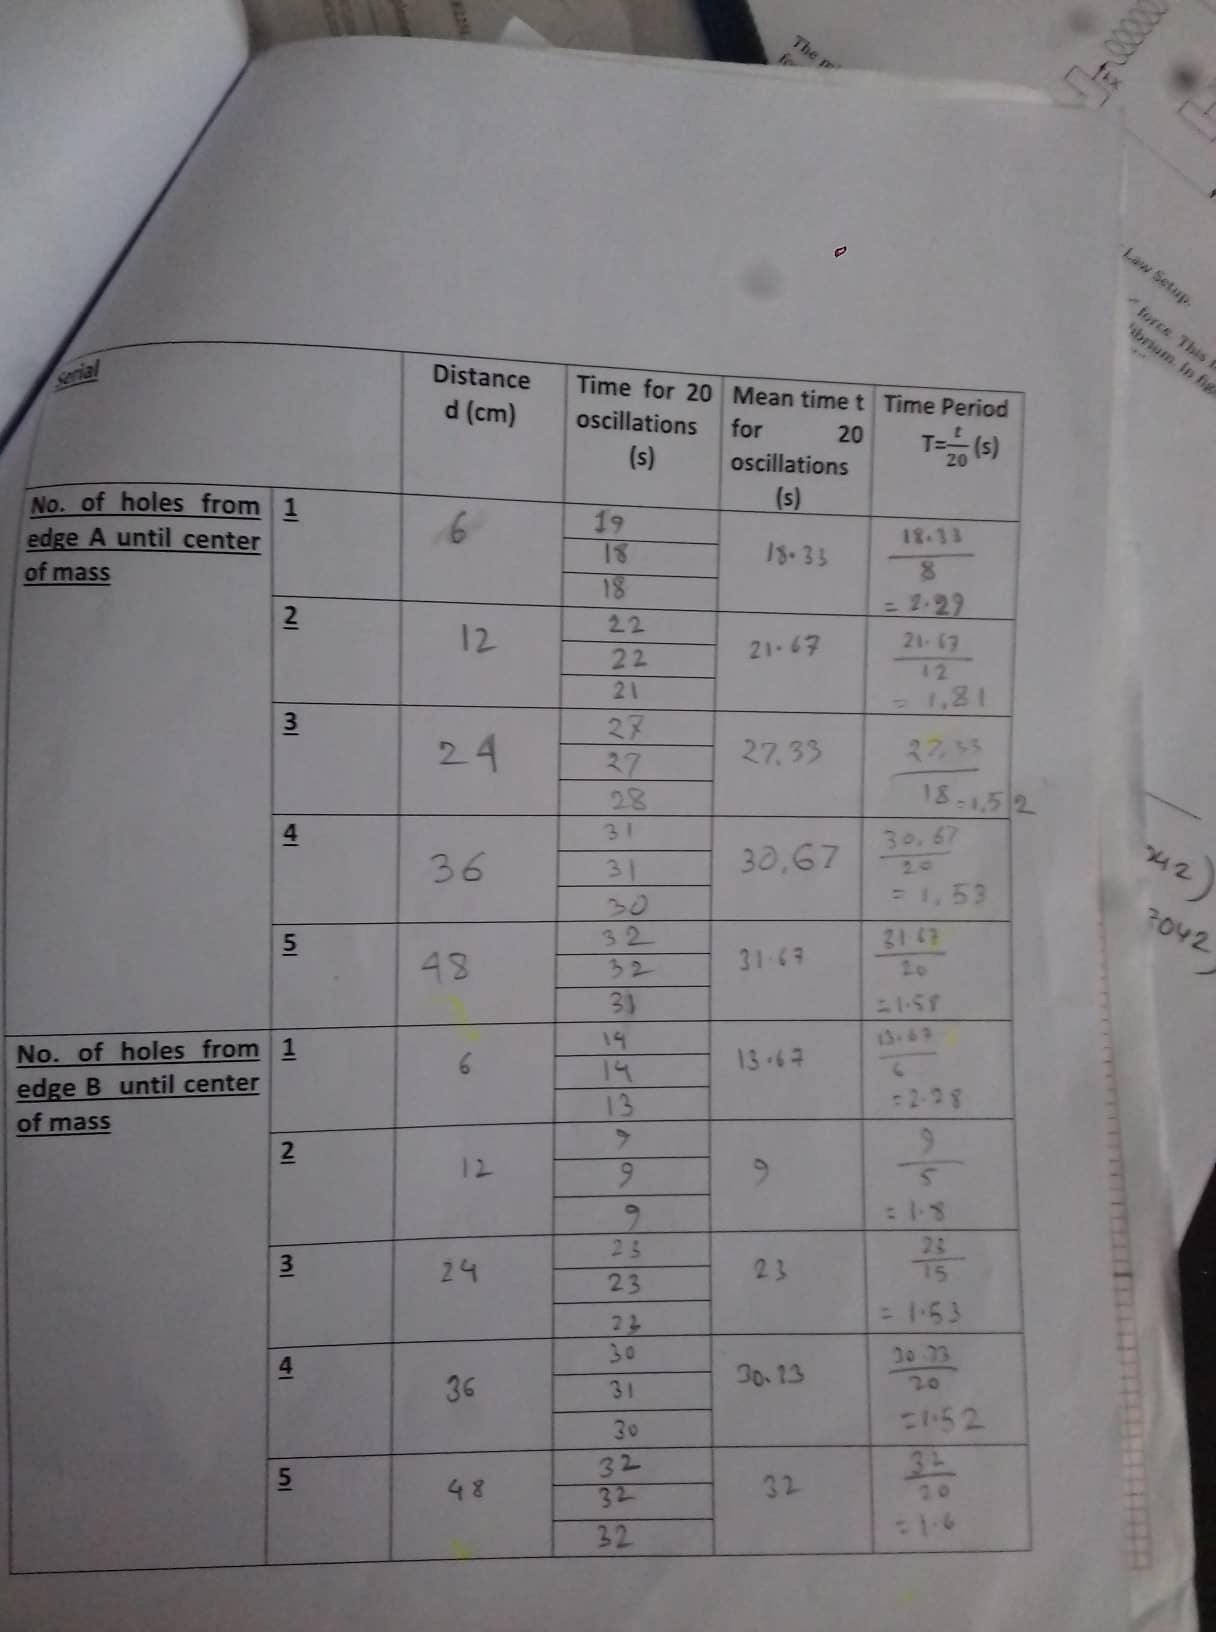 The
Law Setup.
force. This
Serial
Distance
d (cm)
Time for 20
oscillations
(s)
Mean time t
for 20
oscillations
(s)
Time Period
T=t/20 (s)
No. of holes from
edge A until center
of mass
1
6
19
18
18
18.33
18.33
8
= 2.29
2
12
22
22
21
21.67
21.67
12
= 1,81
3
24
27
27
28
27.33
27.33
18 = 1,52
4
36
31
31
30
30,67
30,67
20
= 1,53
5
48
32
32
31
31.67
31.67
20
=1.58
No. of holes from
edge B until center
of mass
1
6
14
14
13
13.67
13.67
6
=2.28
2
12
9
9
9
9
9
5
= 1.8
3
24
23
23
23
23
23
15
= 1.53
4
36
30
31
30
30.33
30.33
20
=1.52
5
48
32
32
32
32
32
20
=1.6